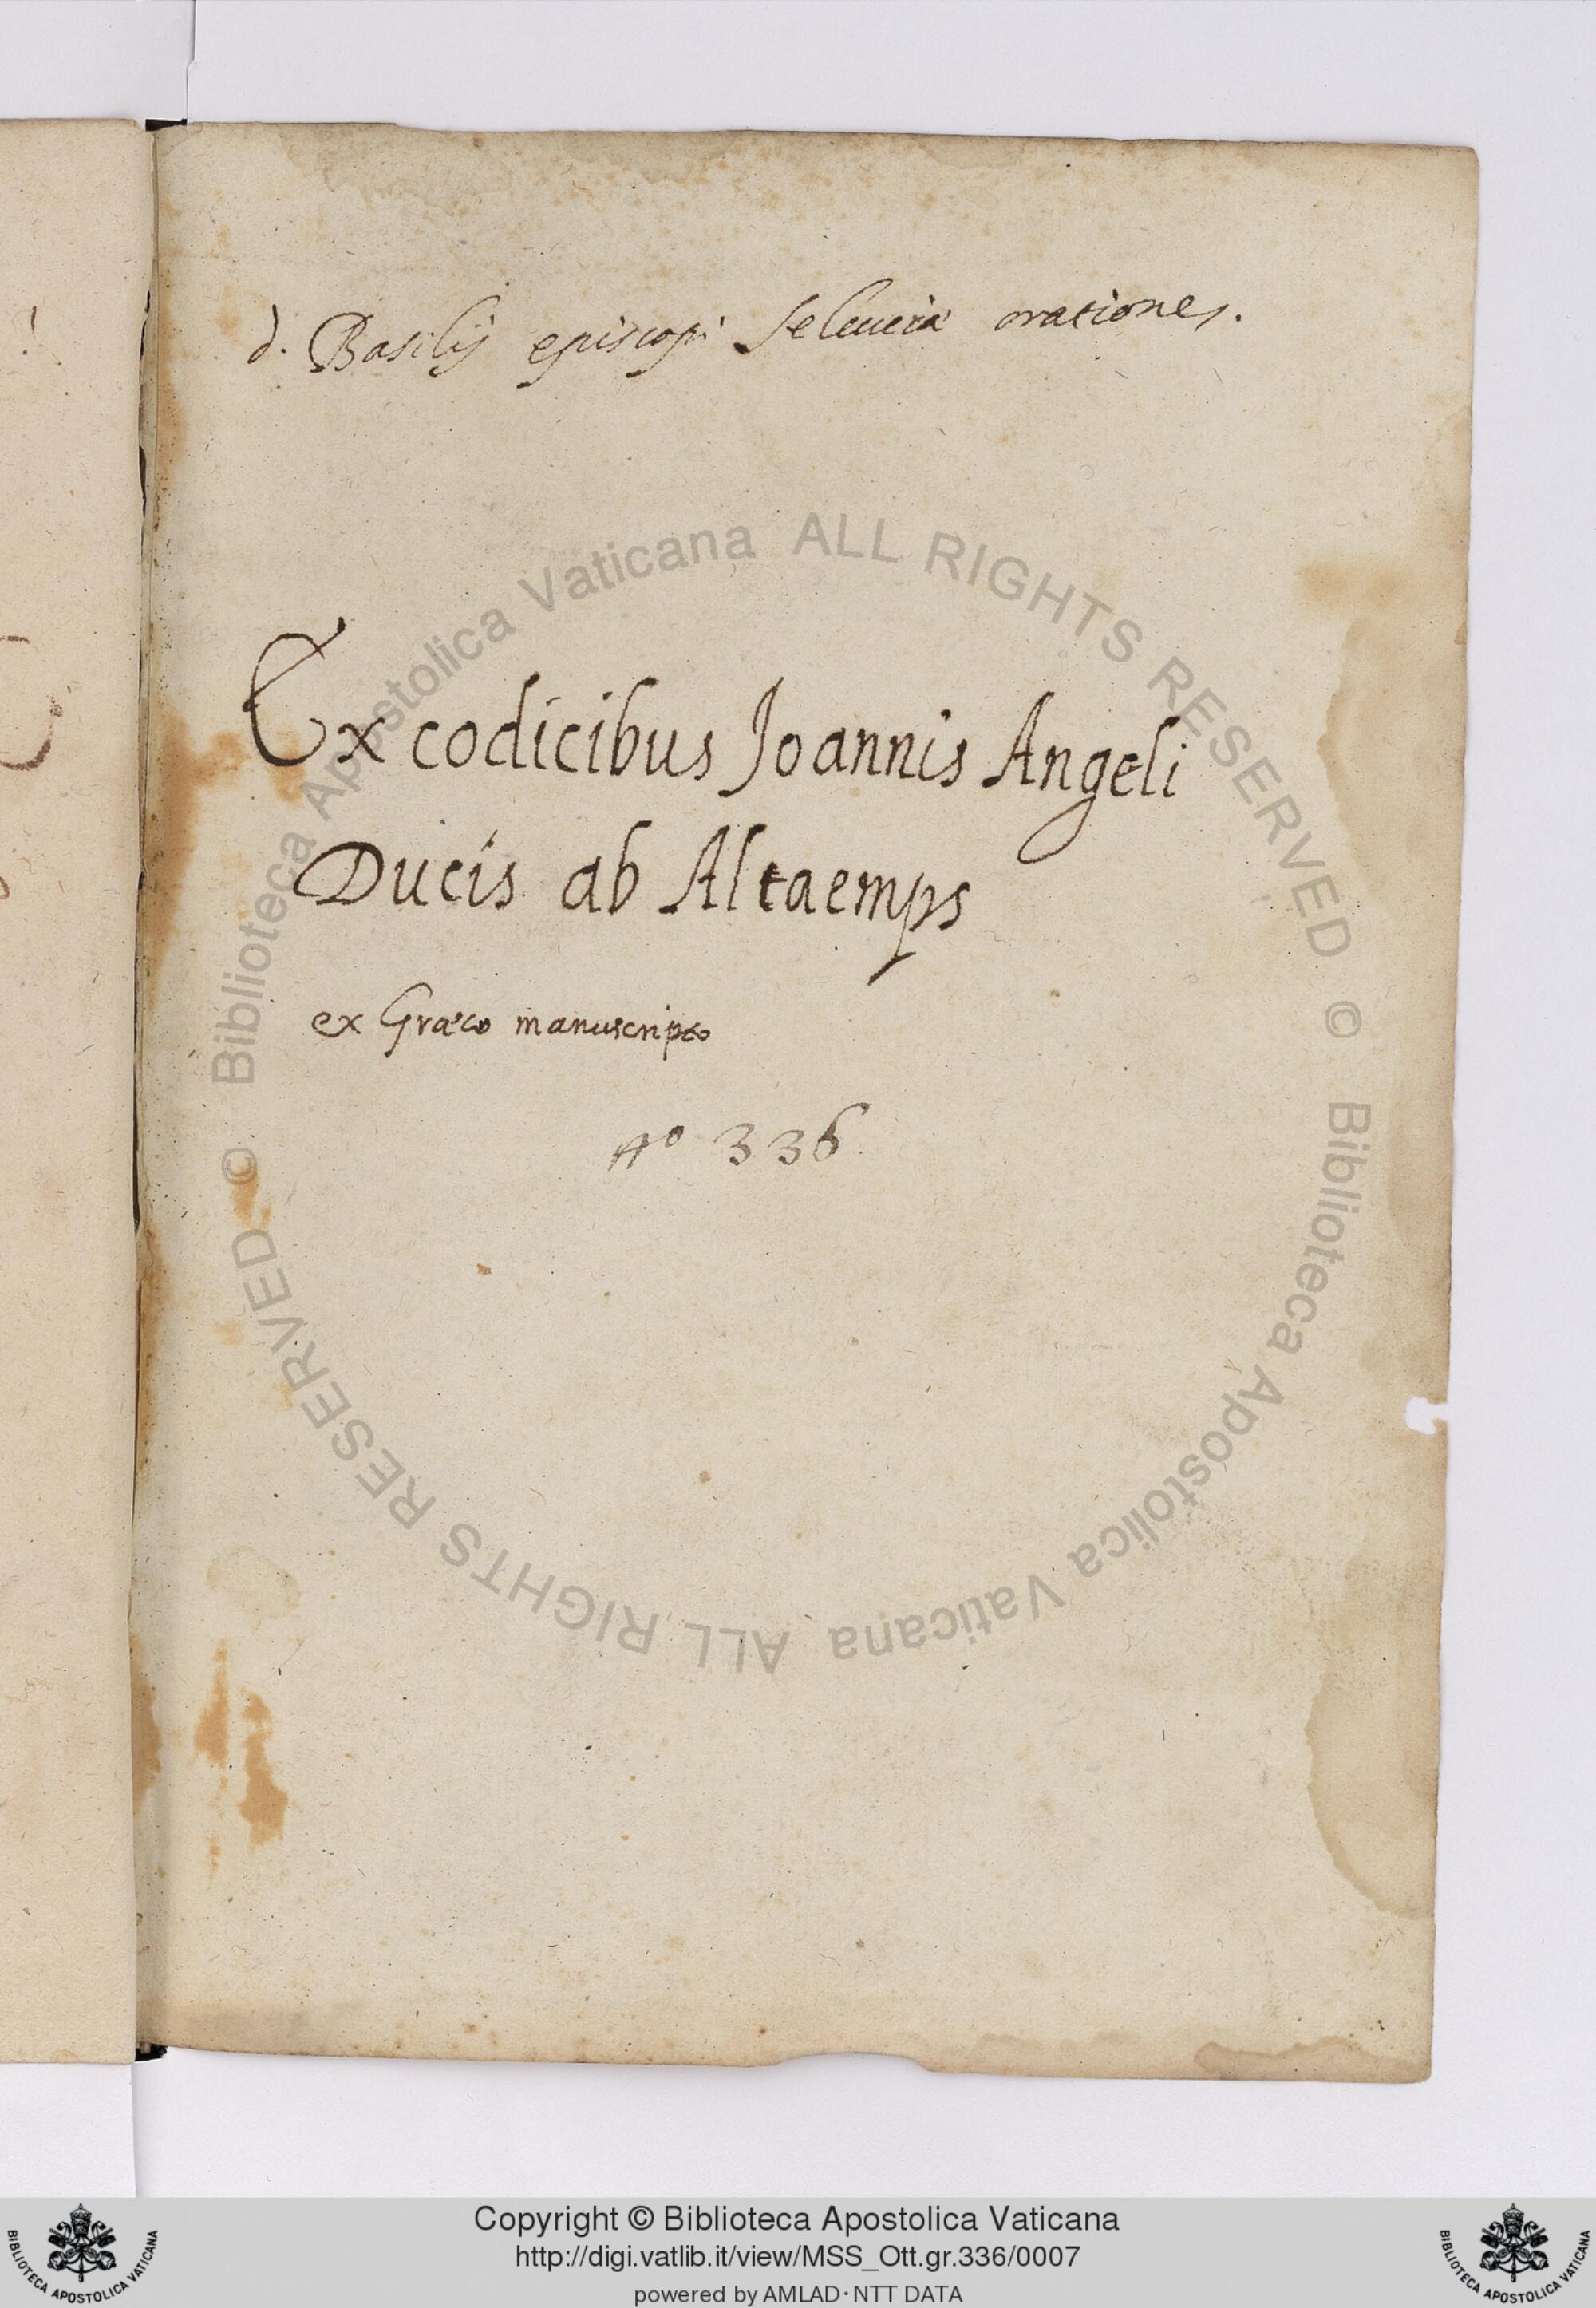 d. Basilij episcopi Seleuciæ orationes.
Ex codicibus Joannis Angeli
Ducis ab Altaemps
ex Græco manuscripto
nº 336.
© Biblioteca Apostolica Vaticana ALL RIGHTS RESERVED
© Biblioteca Apostolica Vaticana ALL RIGHTS RESERVED
Copyright © Biblioteca Apostolica Vaticana
http://digi.vatlib.it/view/MSS_Ott.gr.336/0007
powered by AMLAD·NTT DATA
BIBLIOTECA APOSTOLICA VATICANA
BIBLIOTECA APOSTOLICA VATICANA